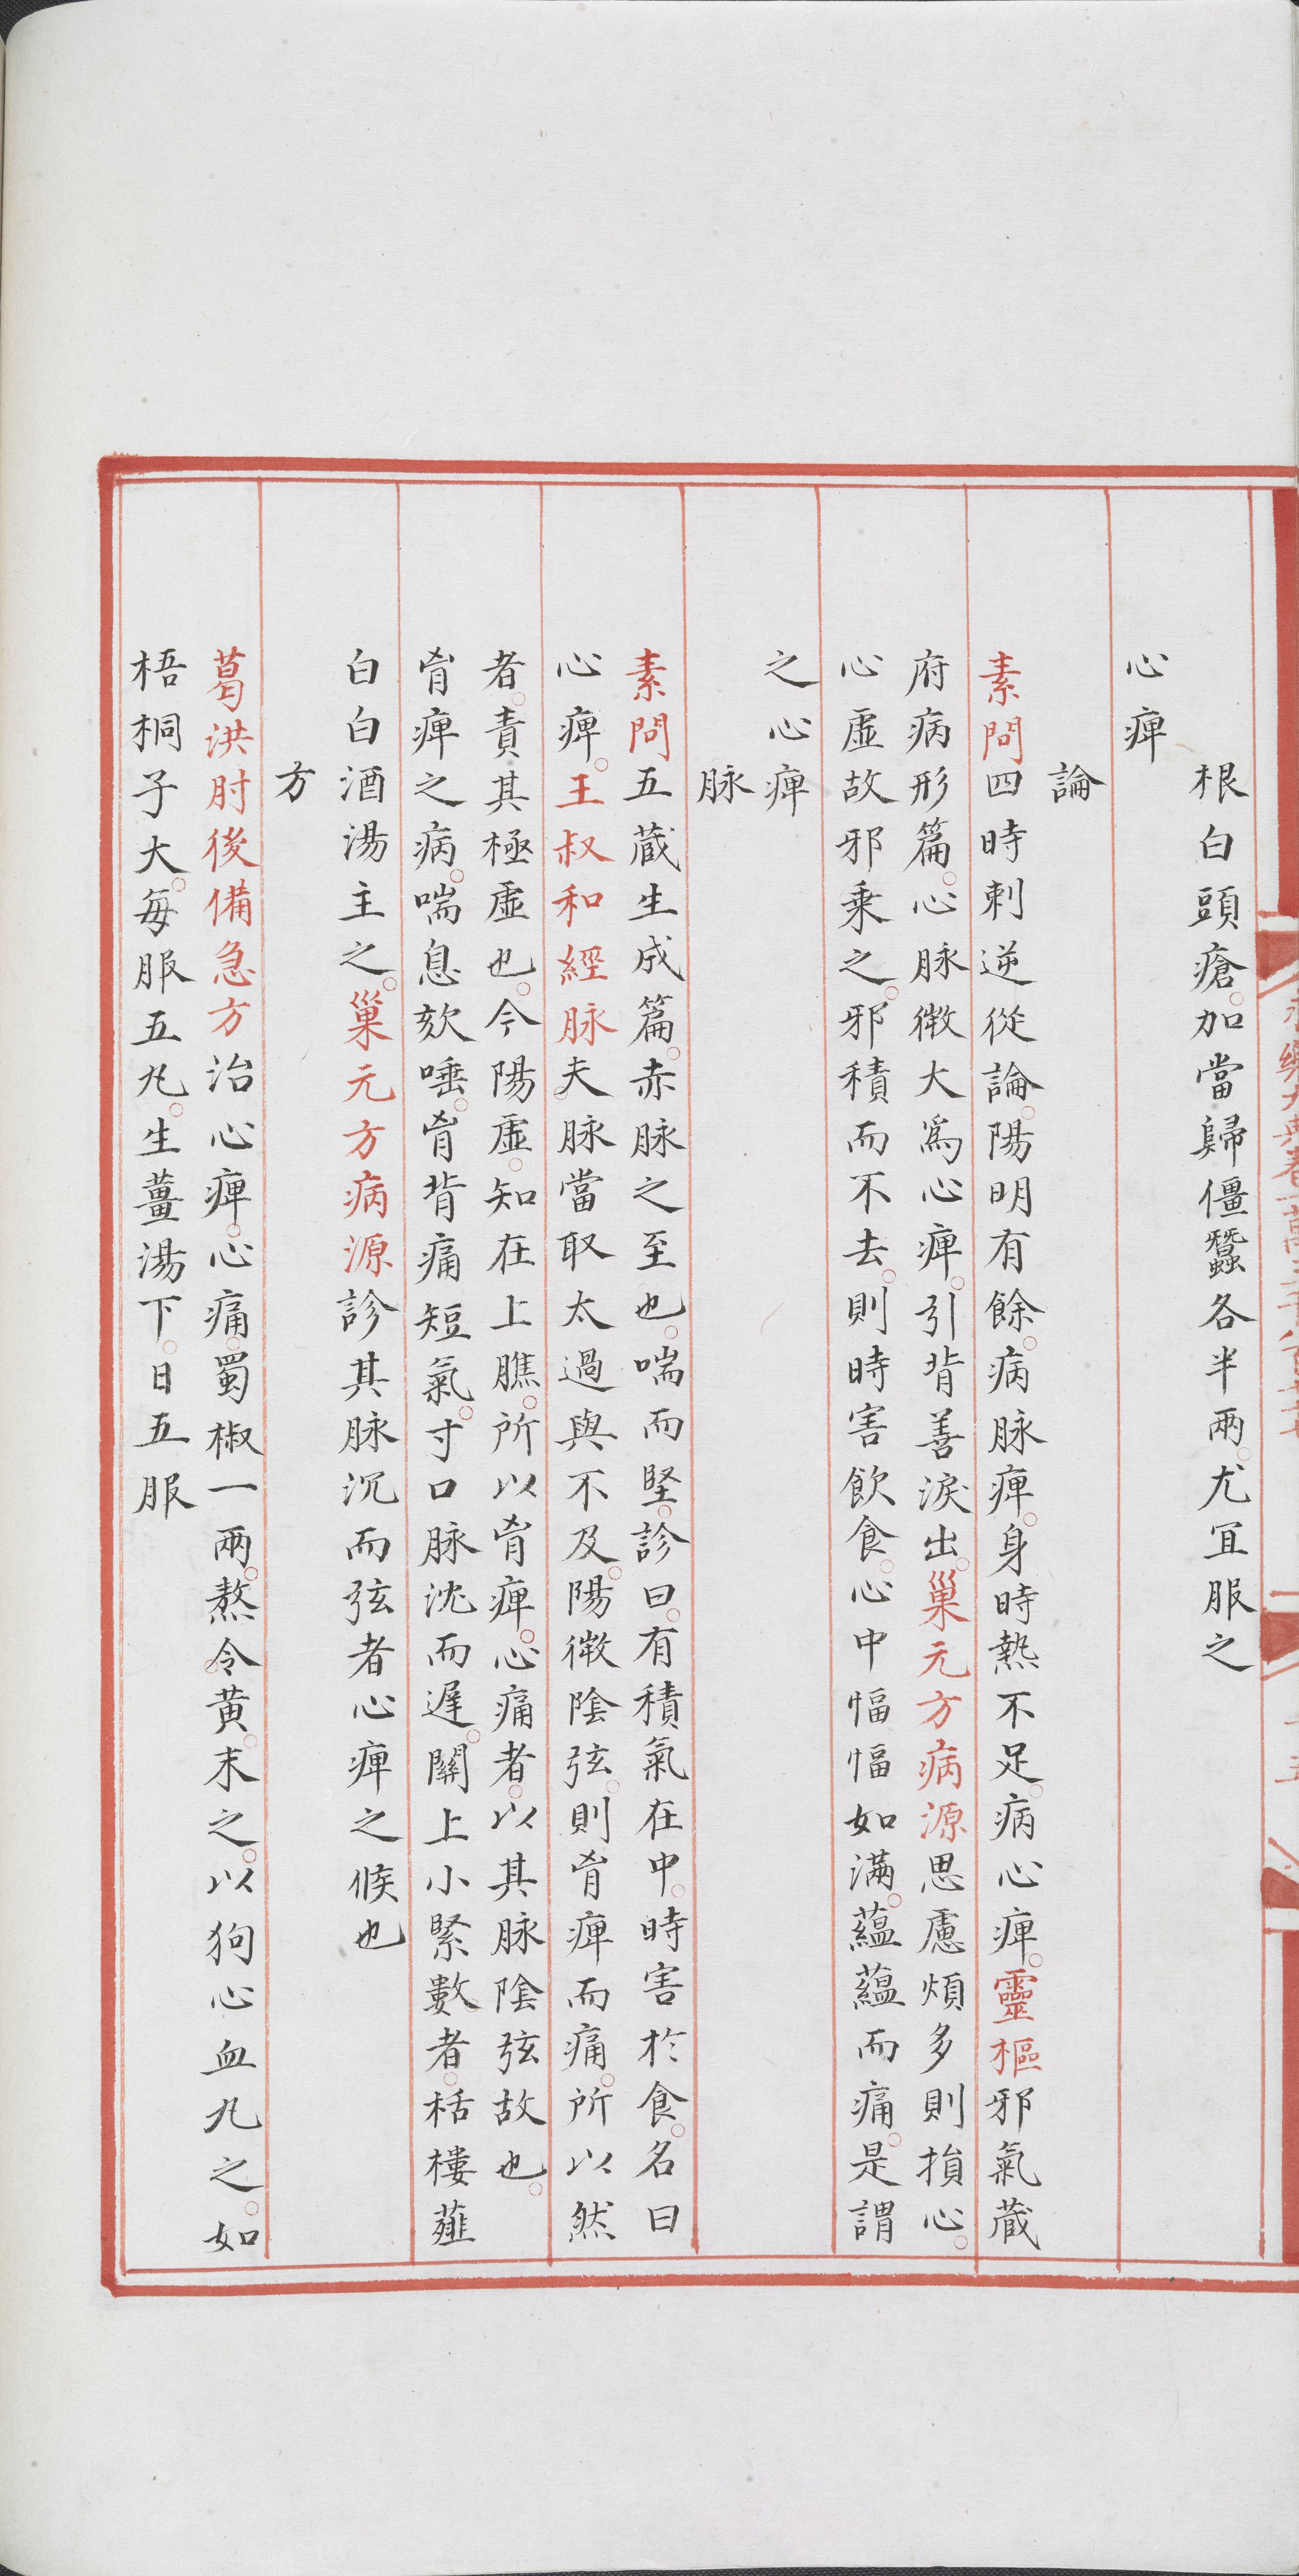 根白頭瘡加當歸僵蠶各半兩尤宜服之
心痺
論
素問四時刺逆從論陽明有餘病脉痺身時熱不足病心痺靈樞邪氣蔵
府病形篇心脉微大為心痺引背善淚出巢元方病源思慮煩多則損心
心虛故邪乗之邪積而不去則時害飲食心中愊愊如滿藴藴而痛是謂
之心痺
脉
素問五蔵生成篇赤脉之至也喘而堅診曰有積氣在中時害於食名曰
心痺王叔和經脉夫脉當取太過與不及陽微陰弦則胷痺而痛所以然
者責其極虛也今陽虛知在上膲所以胷痺心痛者以其脉陰弦故也
胷痺之病喘息欬唾胷背痛短氣寸口脉沈而遲關上小緊數者栝樓薤
白白酒湯主之巢元方病源診其脉沉而弦者心痺之候也
方
葛洪肘後備急方治心痺心痛蜀椒一兩熬令黃末之以狗心血丸之如
梧桐子大每服五丸生薑湯下日五服